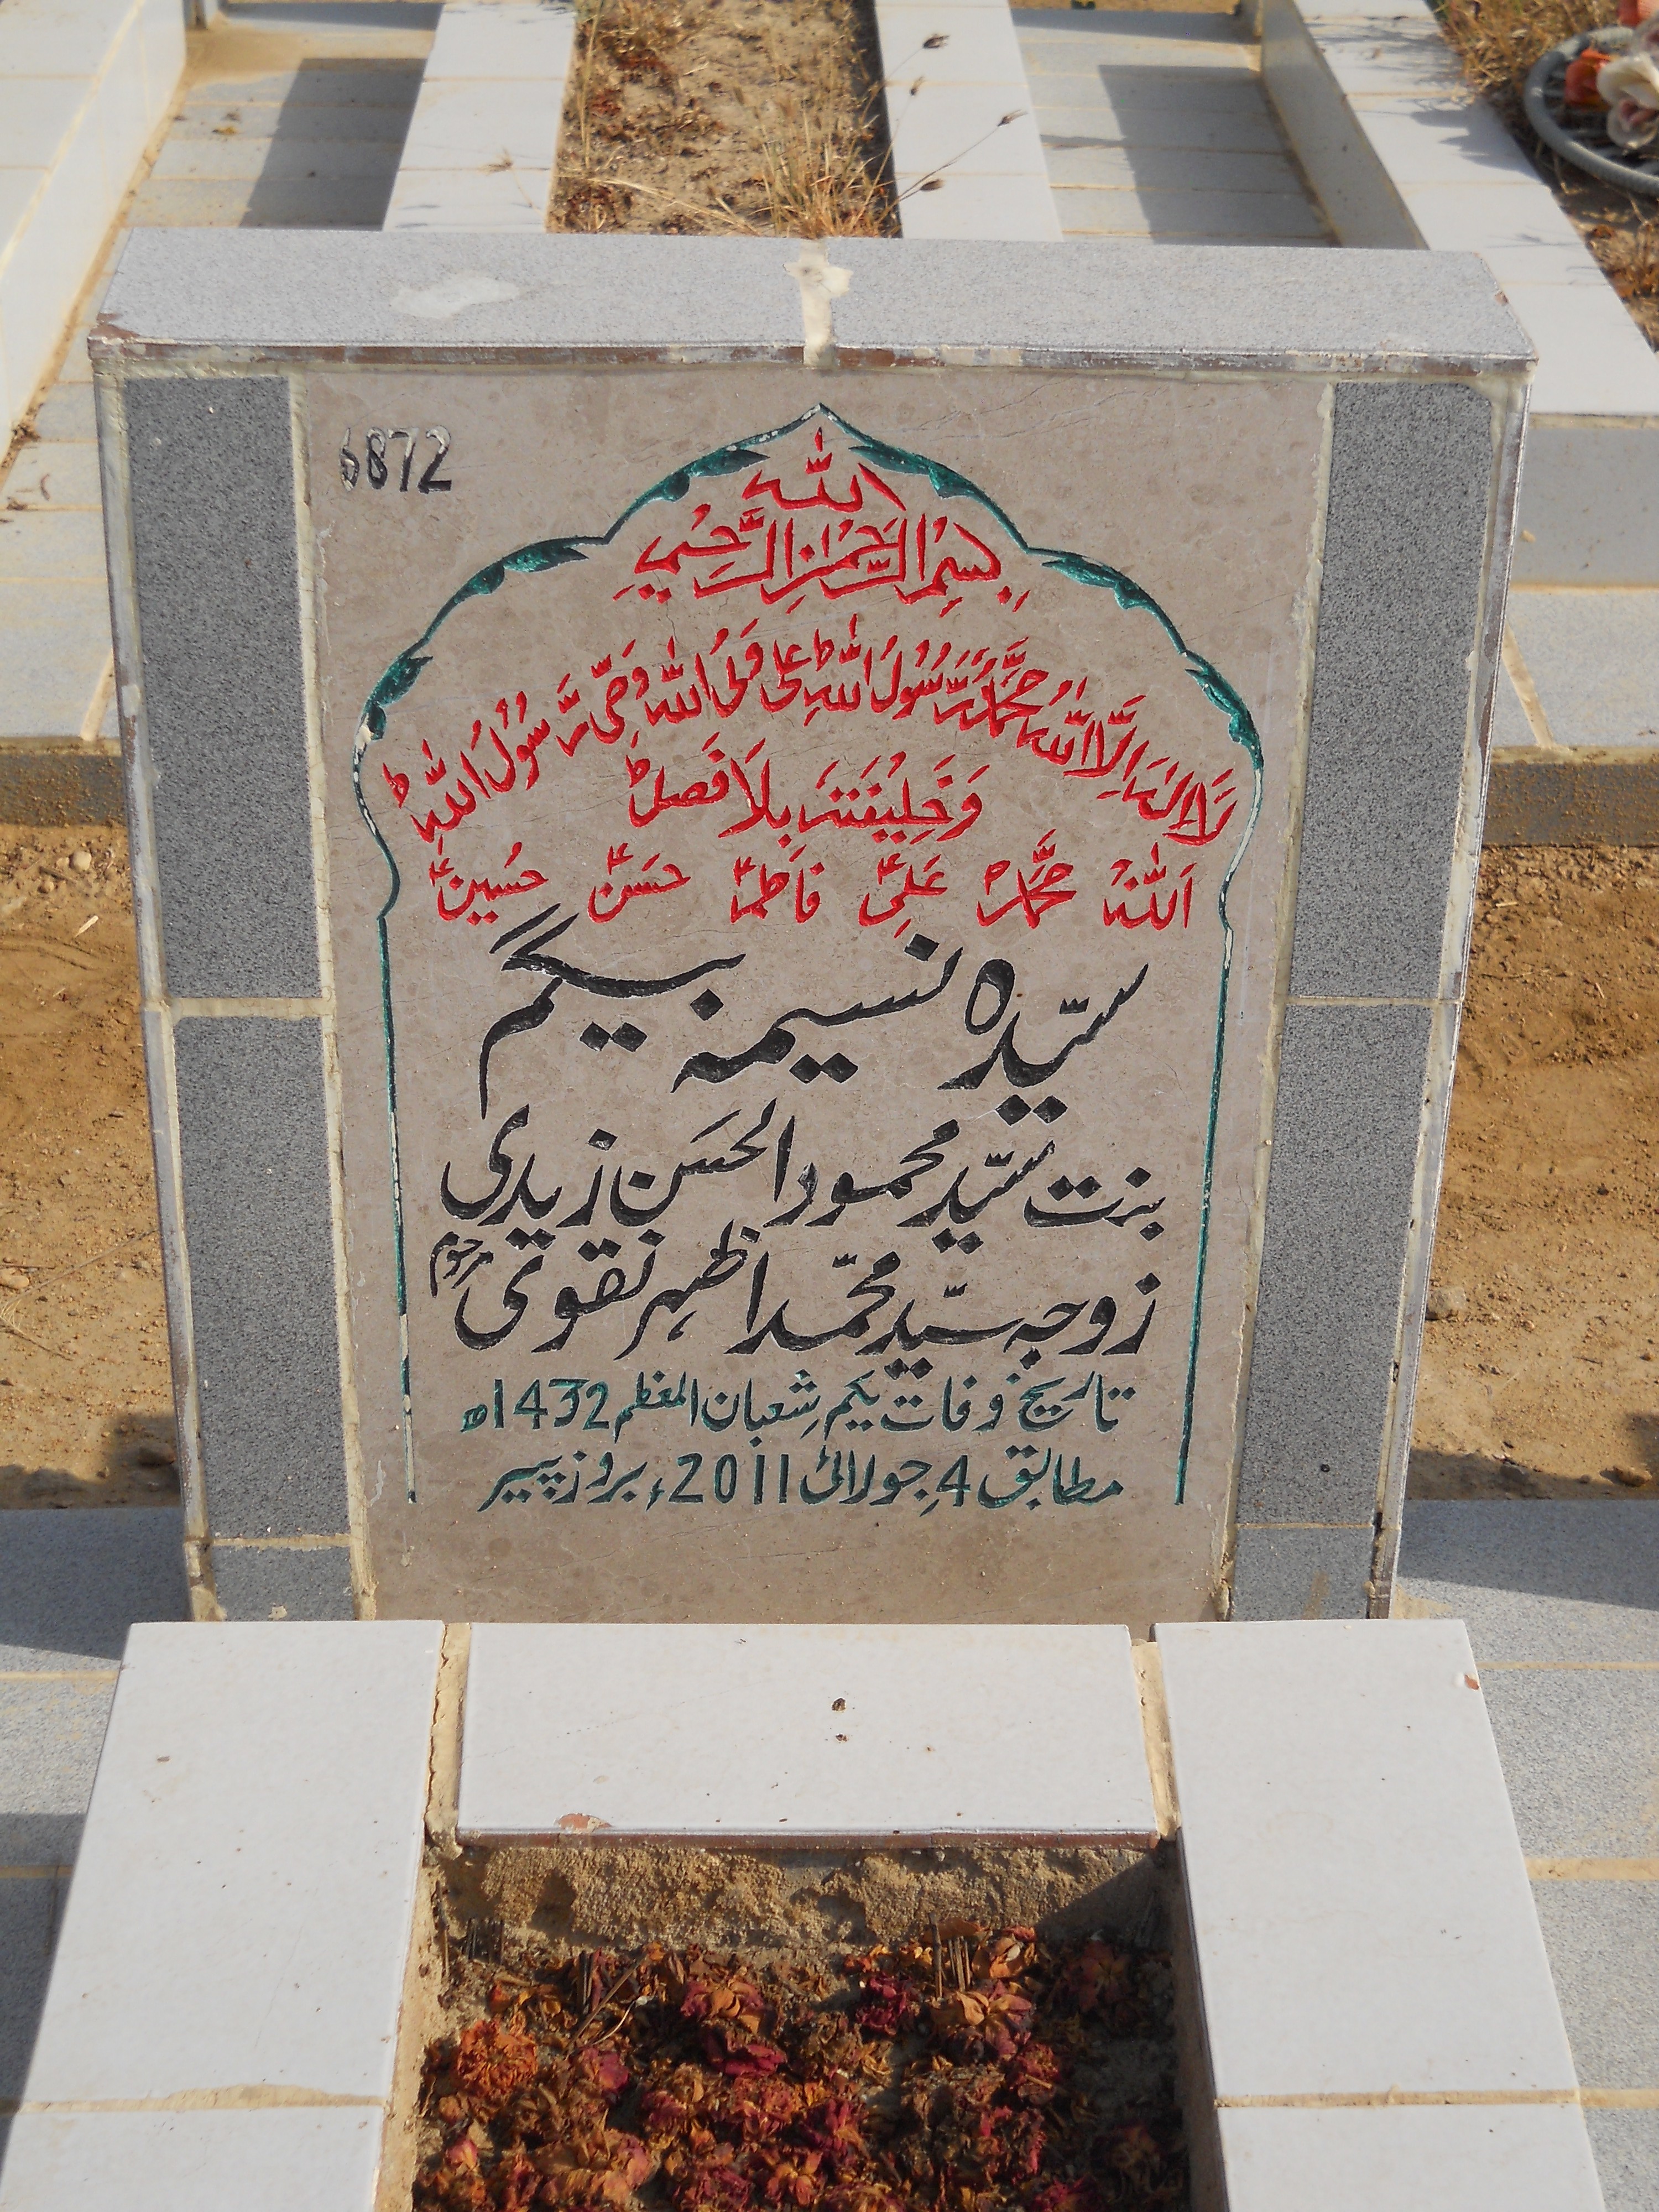 6872
بِسْمِ اللّٰهِ الرَّحْمٰنِ الرَّحِيْمِ
لَا اِلٰهَ اِلَّا اللّٰهُ مُحَمَّدٌ رَّسُوْلُ اللّٰهِ ؕ عَلِیٌّ وَلِیُّ اللّٰهِ وَصِیُّ رَسُوْلُ اللّٰهِ ؕ
وَخَلِيْفَتُهٗ بِلَا فَصْل ؕ
اَللّٰهُ مُحَمَّدؐ عَلِیؑ فَاطِمَہؑ حَسَنؑ حُسَینؑ
سیّدہ نسیمہ بیگم
بنت سیّد محمود الحسَن زیدی
زوجہ سیّد محمّد اظہر نقوی مرحوم
تاریخ وفات یکم شعبان المعظم 1432ھ
مطابق 4 جولائی 2011ء بروز پیر